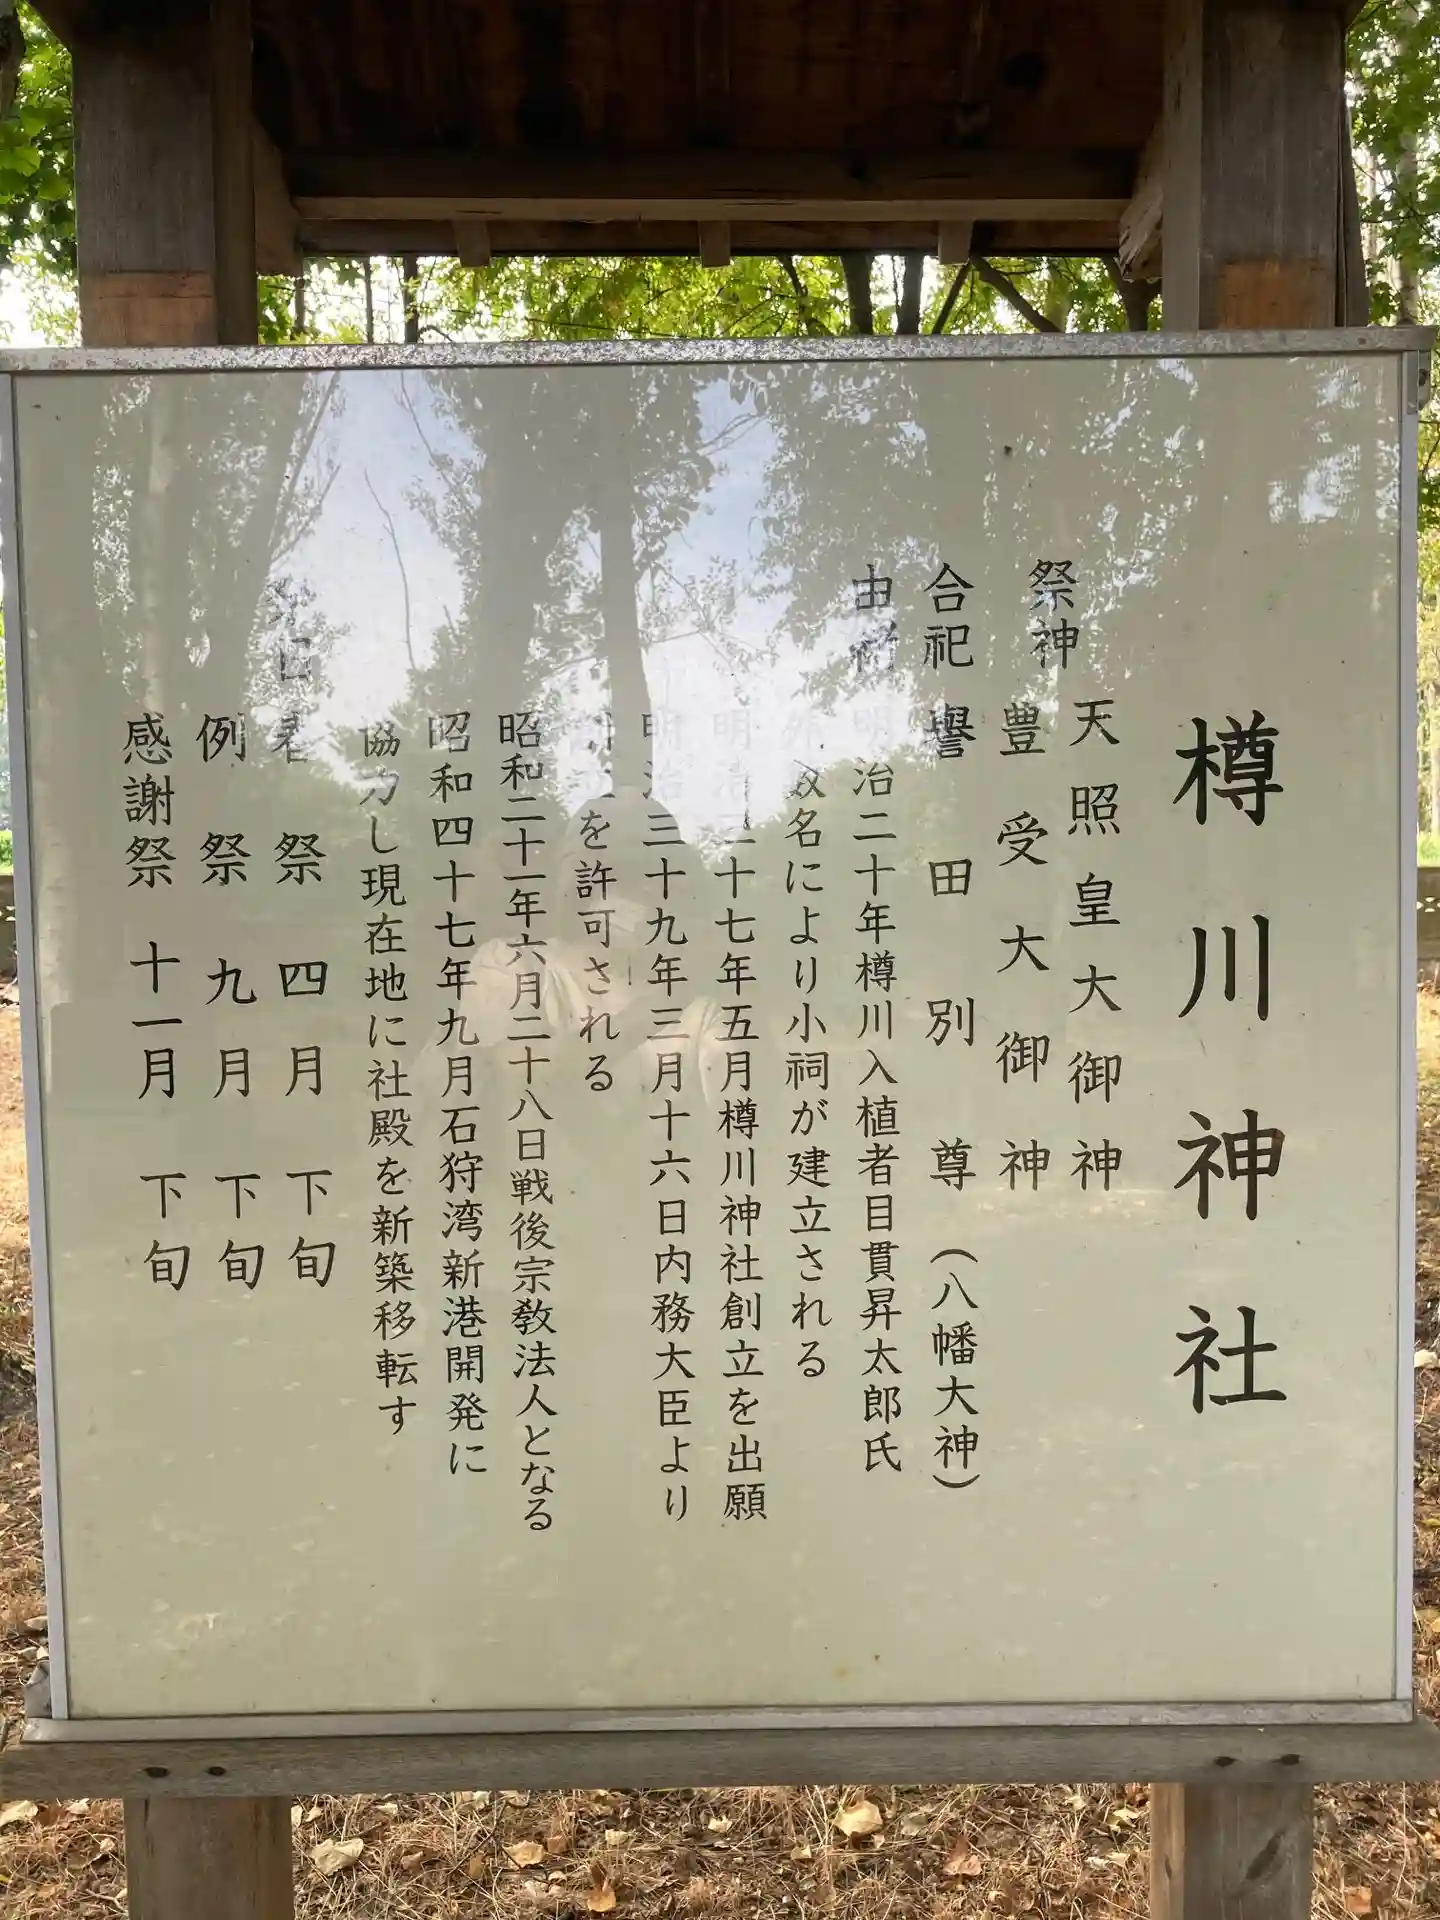 樽川神社
祭神 天照皇大御神
豊受大御神
合祀 譽田別尊(八幡大神)
由緒 明治二十年樽川入植者目貫昇太郎氏
数名により小祠が建立される
明治三十七年五月樽川神社創立を出願
明治三十九年三月十六日内務大臣より
を許可される
昭和二十一年六月二十八日戦後宗教法人となる
昭和四十七年九月石狩湾新港開発に
協力し現在地に社殿を新築移転す
祭日 春祭 四月 下旬
例祭 九月 下旬
感謝祭 十一月 下旬